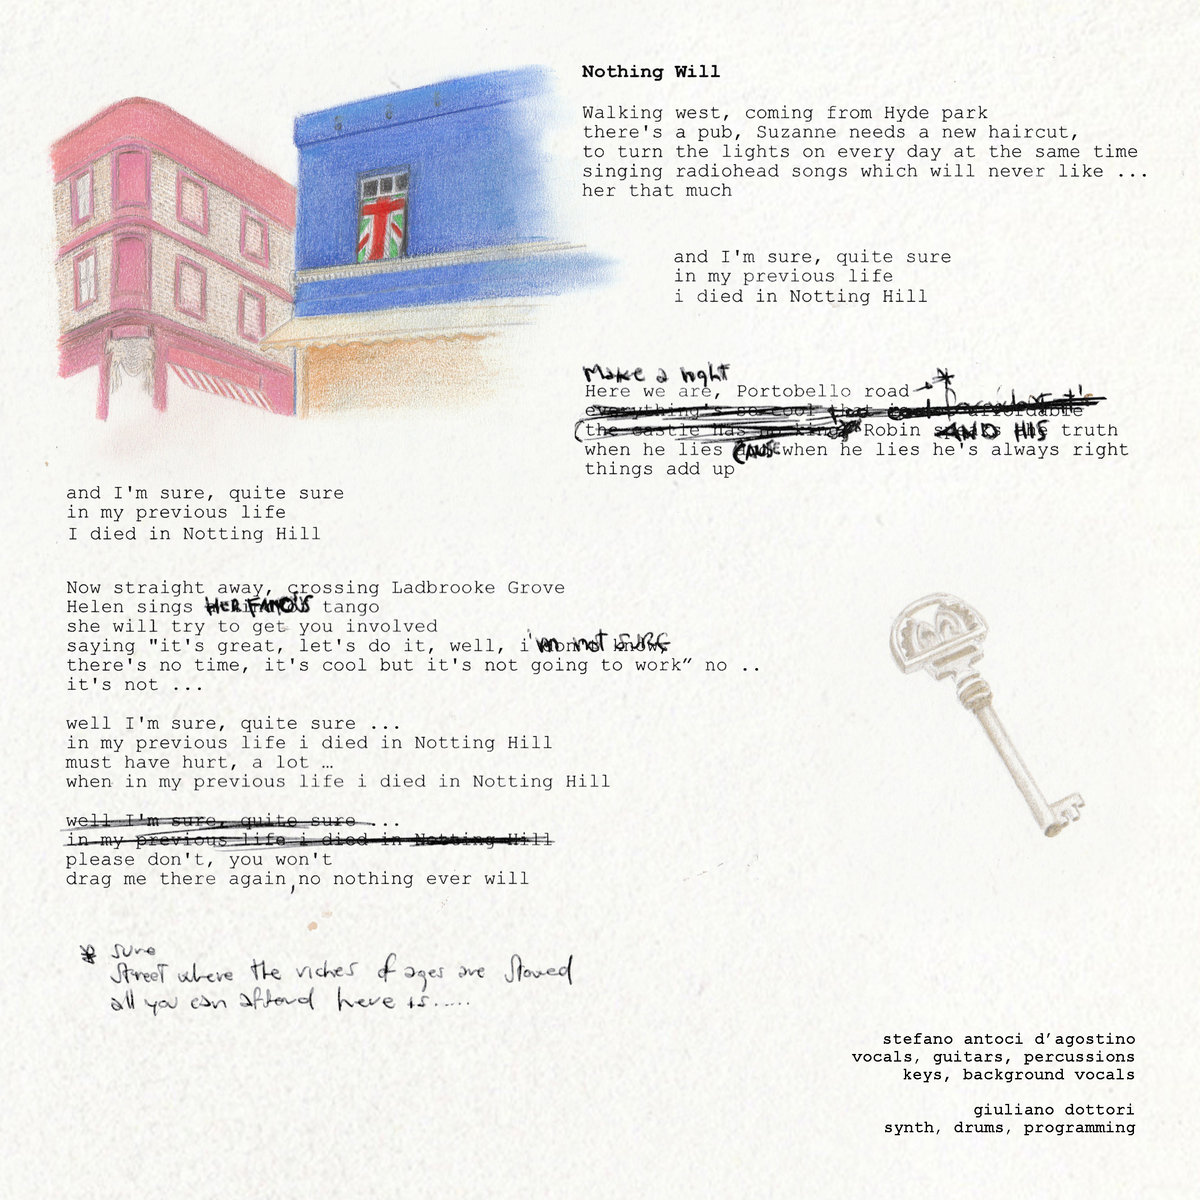 Nothing Will
Walking west, coming from Hyde park
there's a pub, Suzanne needs a new haircut,
to turn the lights on every day at the same time
singing radiohead songs which will never like ...
her that much
and I'm sure, quite sure
in my previous life
i died in Notting Hill
Make a right
Here we are, Portobello road *
everything's so cool that affordable it's
the castle has no king Robin AND HIS truth
when he lies CAUSE when he lies he's always right
things add up
and I'm sure, quite sure
in my previous life
I died in Notting Hill
Now straight away, crossing Ladbrooke Grove
Helen sings HER FAMOUS tango
she will try to get you involved
saying "it's great, let's do it, well, i'm not SURE
there's no time, it's cool but it's not going to work” no ..
it's not ...
well I'm sure, quite sure ...
in my previous life i died in Notting Hill
must have hurt, a lot …
when in my previous life i died in Notting Hill
well I'm sure, quite sure ...
in my previous life i died in Notting Hill
please don't, you won't
drag me there again, no nothing ever will
* sure
street where the riches of ages are stowed
all you can afford here is.....
stefano antoci d’agostino
vocals, guitars, percussions
keys, background vocals
giuliano dottori
synth, drums, programming